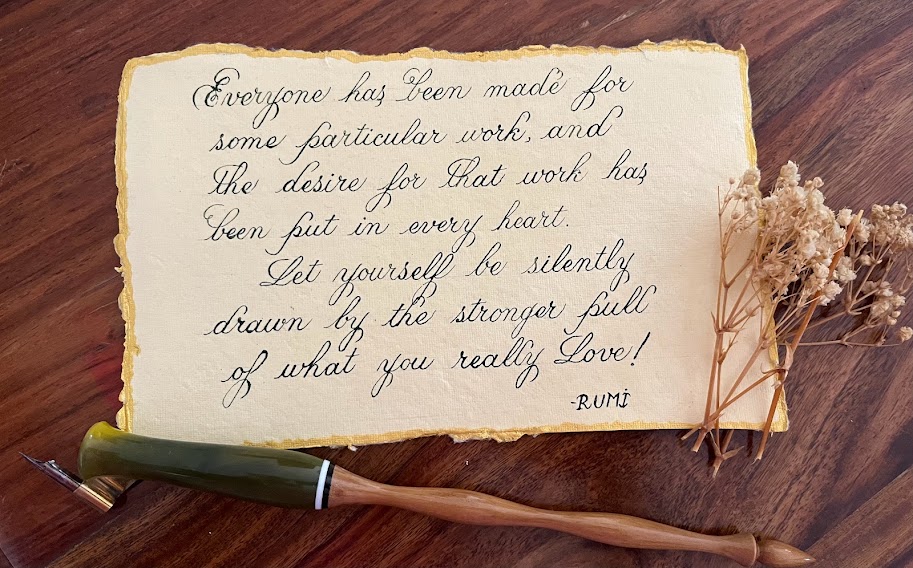 Everyone has been made for
some particular work, and
the desire for that work has
been put in every heart.
Let yourself be silently
drawn by the stronger pull
of what you really Love!
-RUMİ